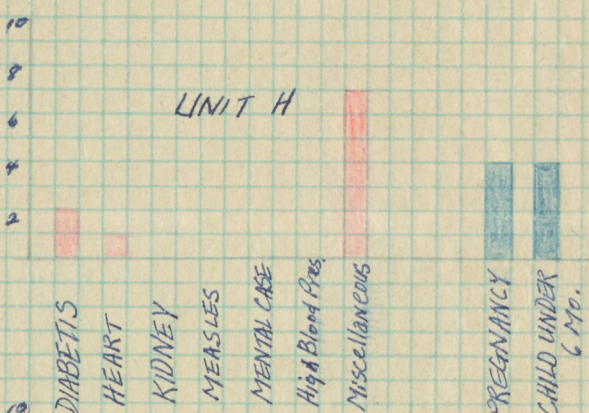 10
8
UNIT H
6
4
2
DIABETIS
HEART
KIDNEY
MEASLES
MENTAL CASE
High Blood Pres.
Miscellaneous
PREGNANCY
CHILD UNDER
6 MO.
10